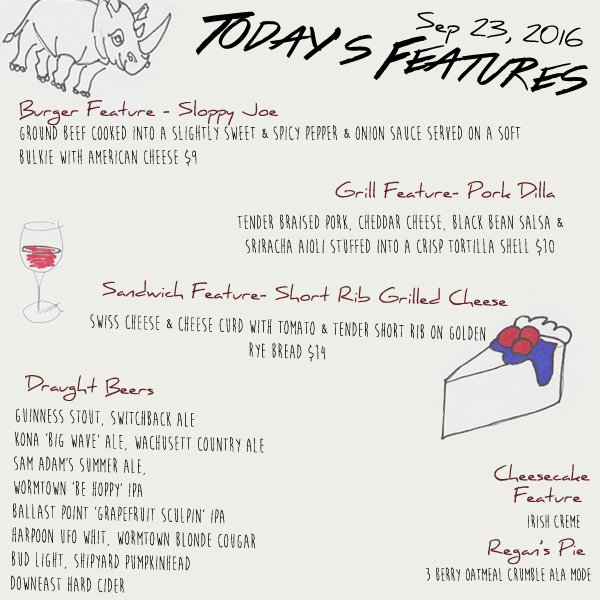 Sep 23, 2016
TODAY'S FEATURES
Burger Feature - Sloppy Joe
GROUND BEEF COOKED INTO A SLIGHTLY SWEET & SPICY PEPPER & ONION SAUCE SERVED ON A SOFT
BULKIE WITH AMERICAN CHEESE $9
Grill Feature- Pork Dilla
TENDER BRAISED PORK, CHEDDAR CHEESE, BLACK BEAN SALSA &
SRIRACHA AIOLI STUFFED INTO A CRISP TORTILLA SHELL $10
Sandwich Feature- Short Rib Grilled Cheese
SWISS CHEESE & CHEESE CURD WITH TOMATO & TENDER SHORT RIB ON GOLDEN
RYE BREAD $14
Draught Beers
GUINNESS STOUT, SWITCHBACK ALE
KONA 'BIG WAVE' ALE, WACHUSETT COUNTRY ALE
SAM ADAM'S SUMMER ALE,
WORMTOWN 'BE HOPPY' IPA
BALLAST POINT 'GRAPEFRUIT SCULPIN' IPA
HARPOON UFO WHIT, WORMTOWN BLONDE COUGAR
BUD LIGHT, SHIPYARD PUMPKINHEAD
DOWNEAST HARD CIDER
Cheesecake
Feature
IRISH CREME
Regan's Pie
3 BERRY OATMEAL CRUMBLE ALA MODE